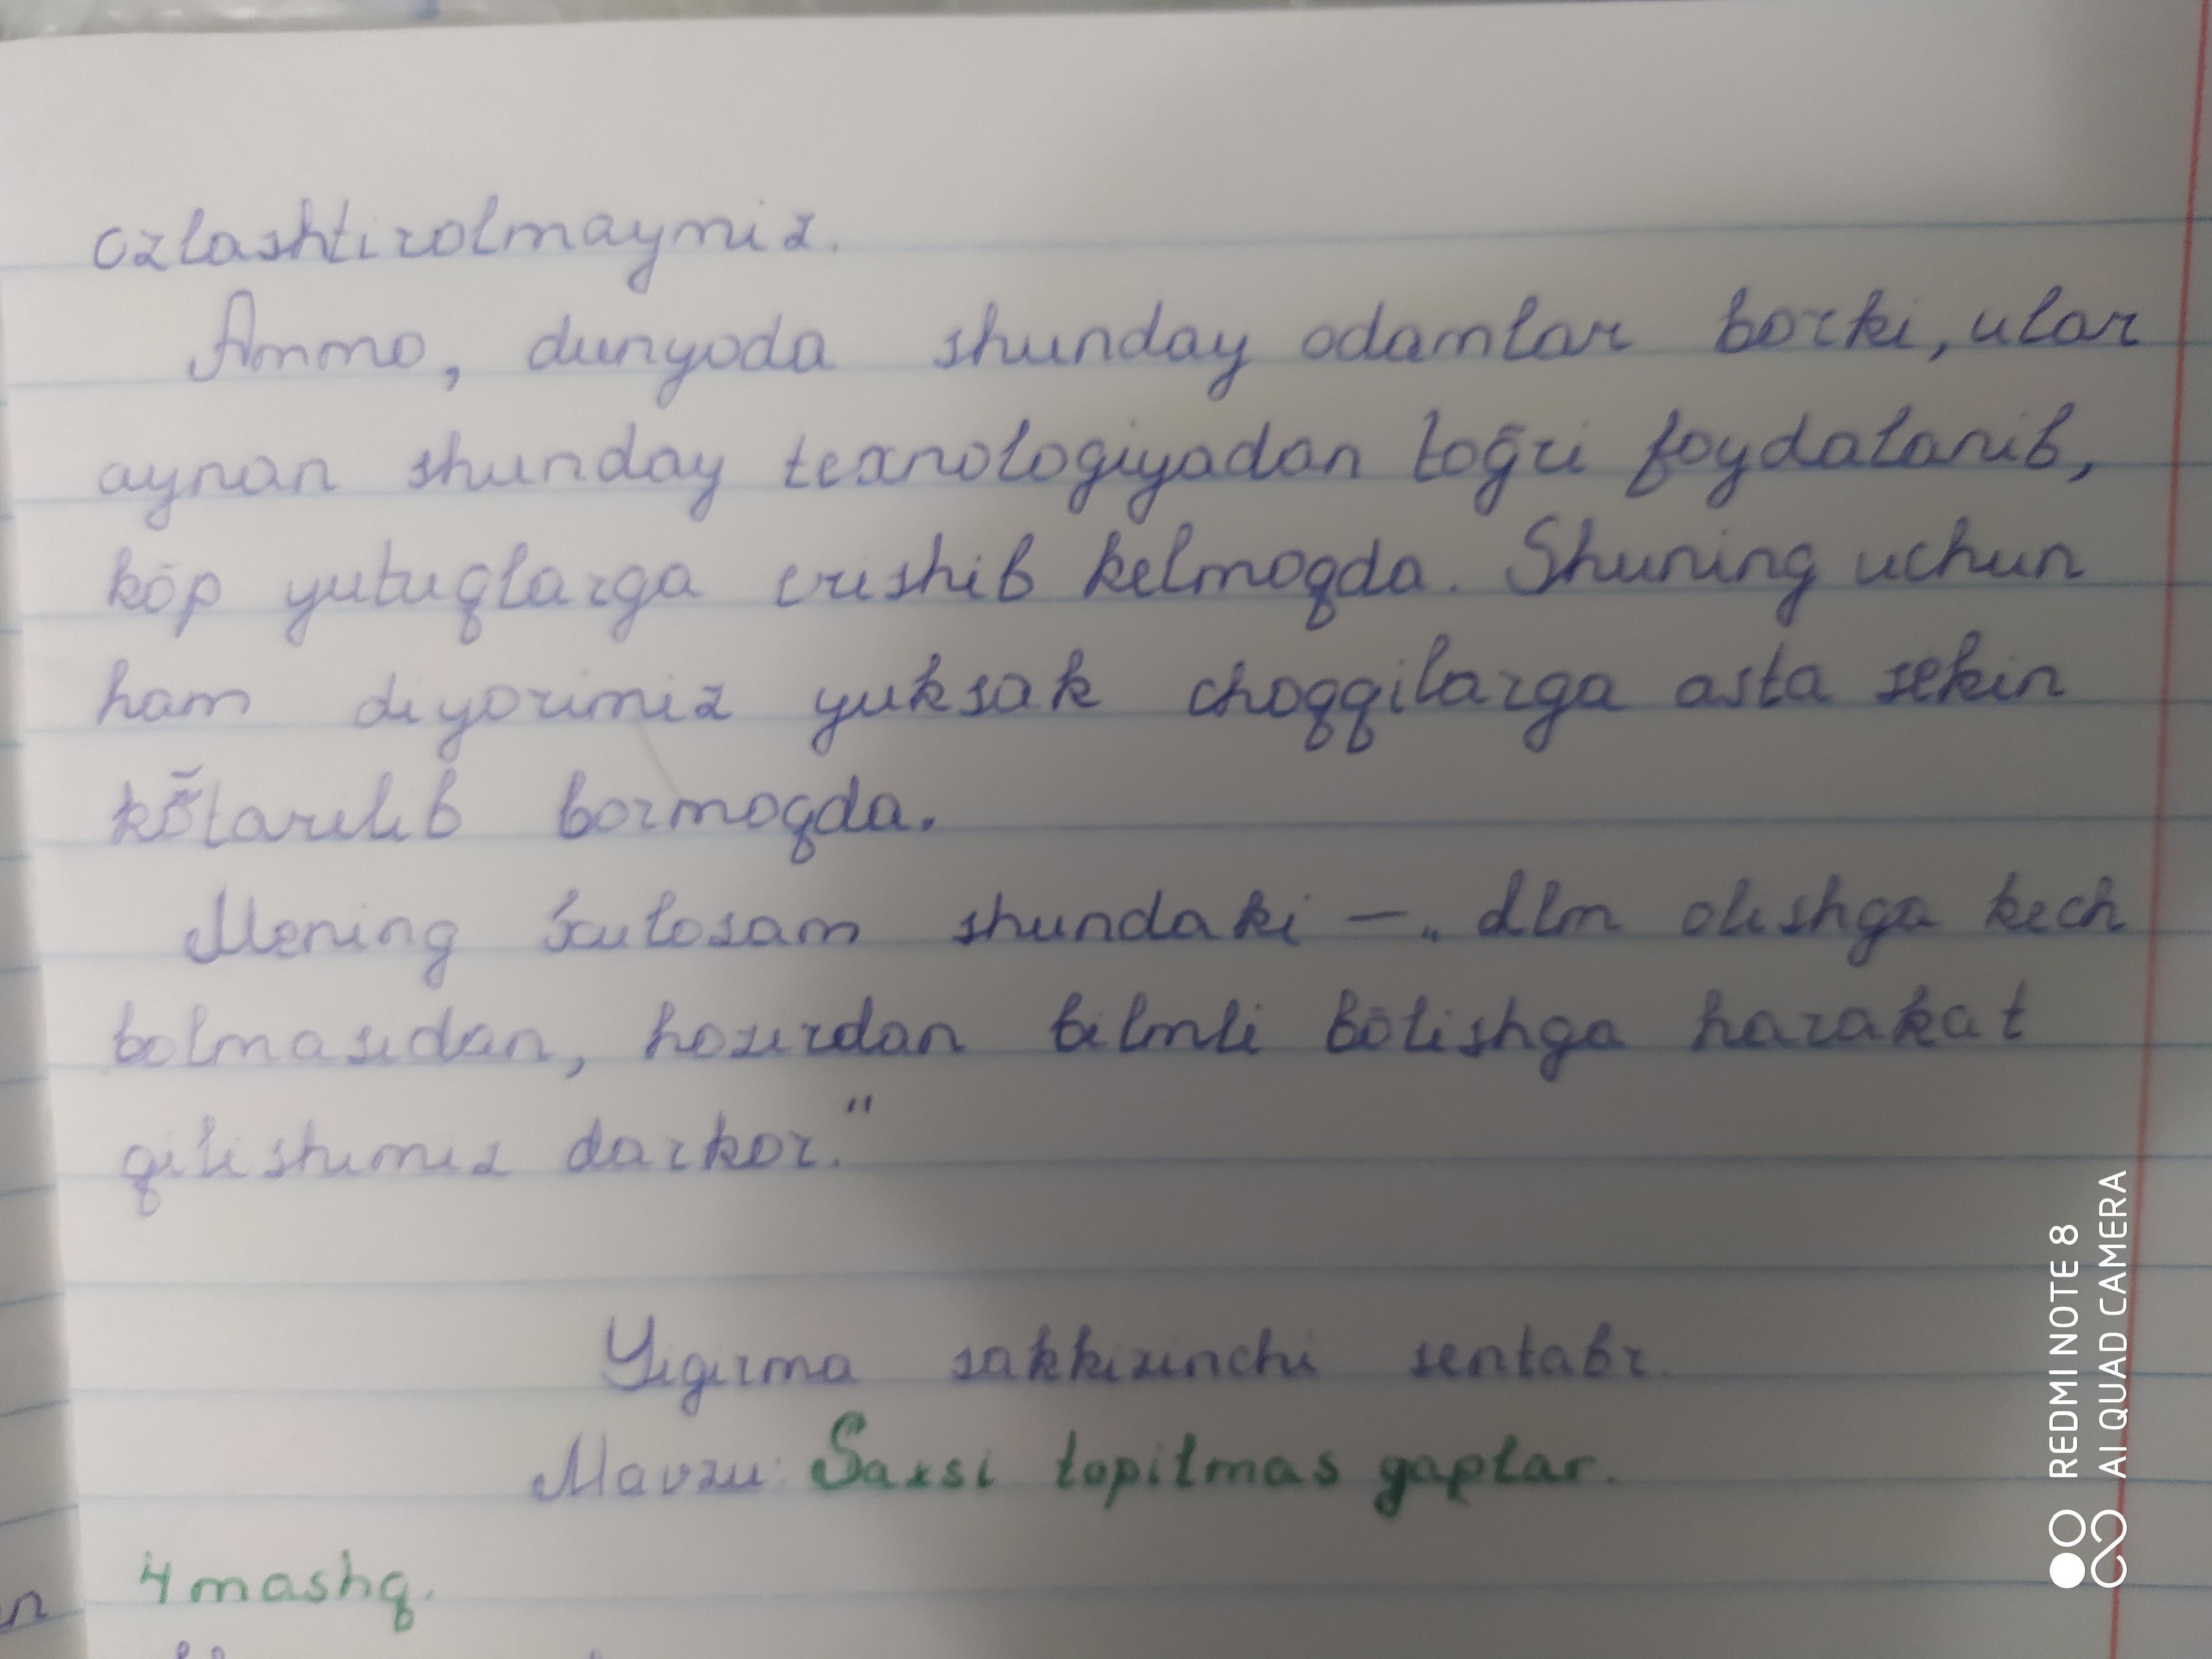 ozlashtirolmaymiz.
Ammo, dunyoda shunday odamlar borki, ular
aynan shunday texnologiyadan toğri foydalanib,
kōp yutuqlarga erishib kelmoqda. Shuning uchun
ham diyorimiz yuksak choqqilarga asta sekin
kōtarilib bormoqda.
Mening xulosam shundaki — „Ilm olishga kech
bolmasidan, hozirdan bilmli bōlishga harakat
qilishimiz darkor."
Yigirma sakkizinchi sentabr.
Mavzu: Saxsi topilmas gaplar.
4 mashq.
REDMI NOTE 8
AI QUAD CAMERA